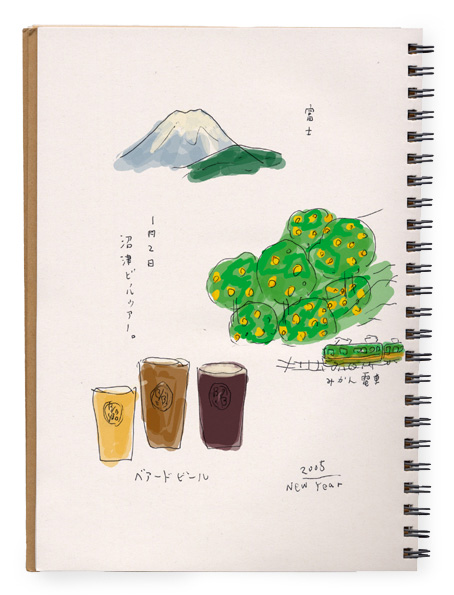 富士
1月2日
沼津ビールツアー。
みかん電車
ベアードビール
2005
NEW Year